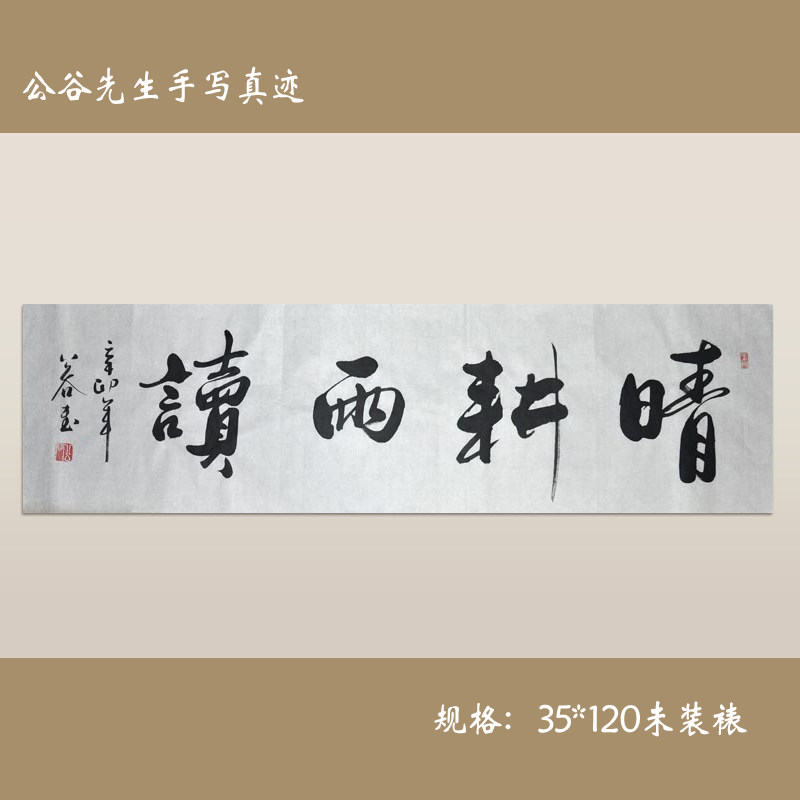 公谷先生手写真迹
晴耕雨讀
辛卯年
公谷书
规格：35*120未装裱